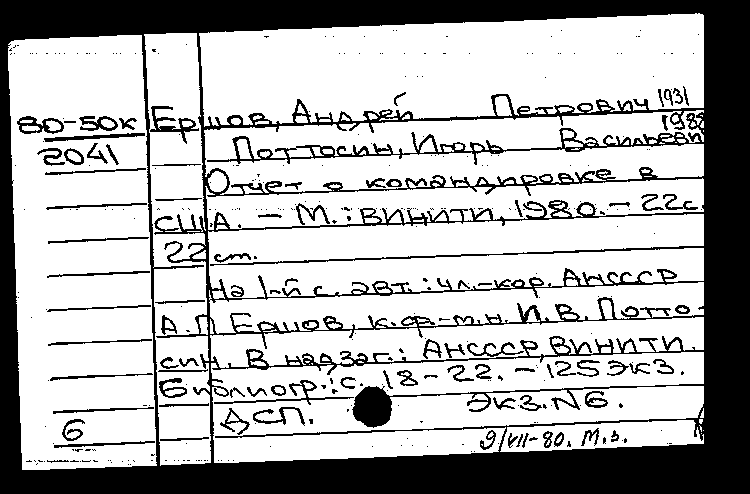 80-50к Ершов, Андрей Петрович 1931
1988
2041 Поттосин, Игорь Васильеви
Отчет о командировке в
США. – М.: ВИНИТИ, 1980. – 22с.
22 ст.
На 1-й с. авт.: чл.-кор. АНСССР
А.П Ершов, к.ф-м.н. И.В. Потто-
син. В надзаг.: АНСССР, ВИНИТИ.
Библиогр.: с. 18-22. – 125 экз.
6 ДСП. Экз. N6.
9/VII-80. М.з.